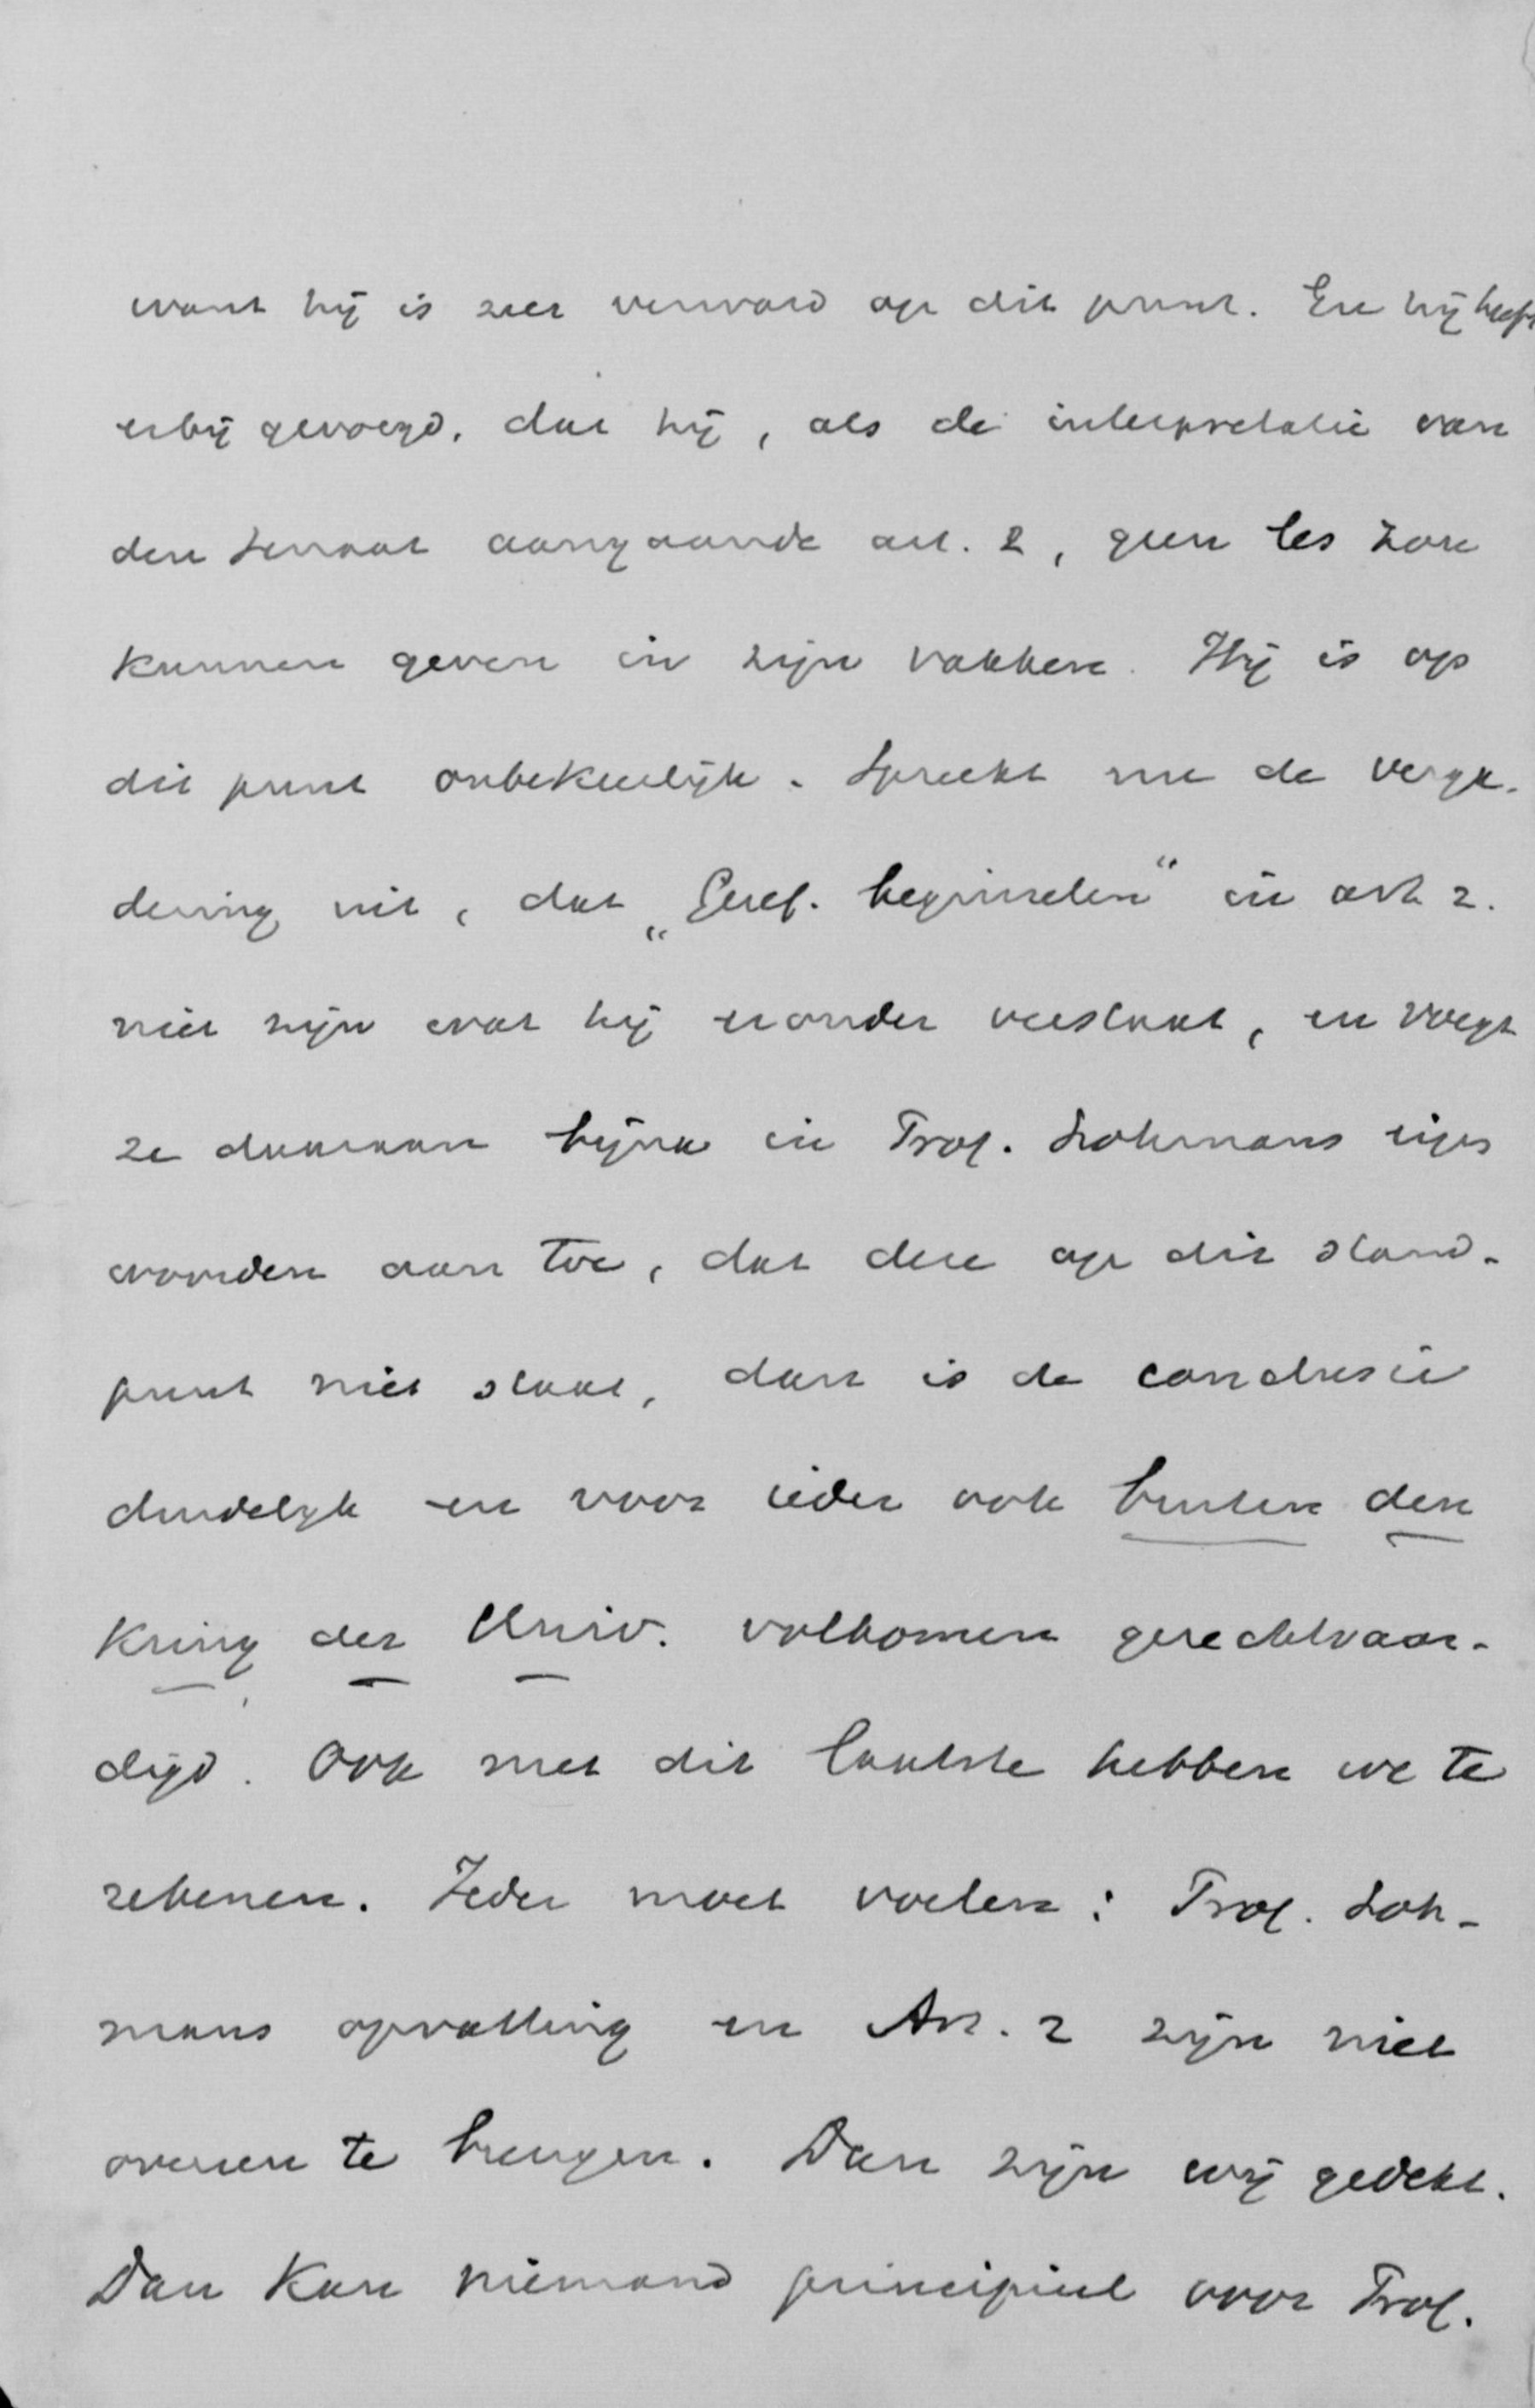 want hij is zeer verward op dit punt. En hij heeft
erbij gevoegd, dat hij, als de interpretatie van
den Senaat aangaande art. 2, geen les zou
kunnen geven in zijn vakken. Hij is op
dit punt onbekeerlijk. Spreekt nu de verga-
dering uit, dat „Geref. beginselen“ in art 2.
niet zijn wat hij eronder verstaat, en voegt
ze daaraan bijna in Prof. Lohmans eigen
woorden aan toe, dat deze op dit stand-
punt niet staat, dan is de conclusie
duidelijk en voor ieder ook buiten den
Kring der Univ. volkomen gerechtvaar-
digd. Ook met dit laatste hebben we te
rekenen. Ieder moet voelen: Prof. Loh-
mans opvatting en Art. 2 zijn niet
overeen te brengen. Dan zijn wij gedekt.
Dan kan niemand principieel voor Prof.